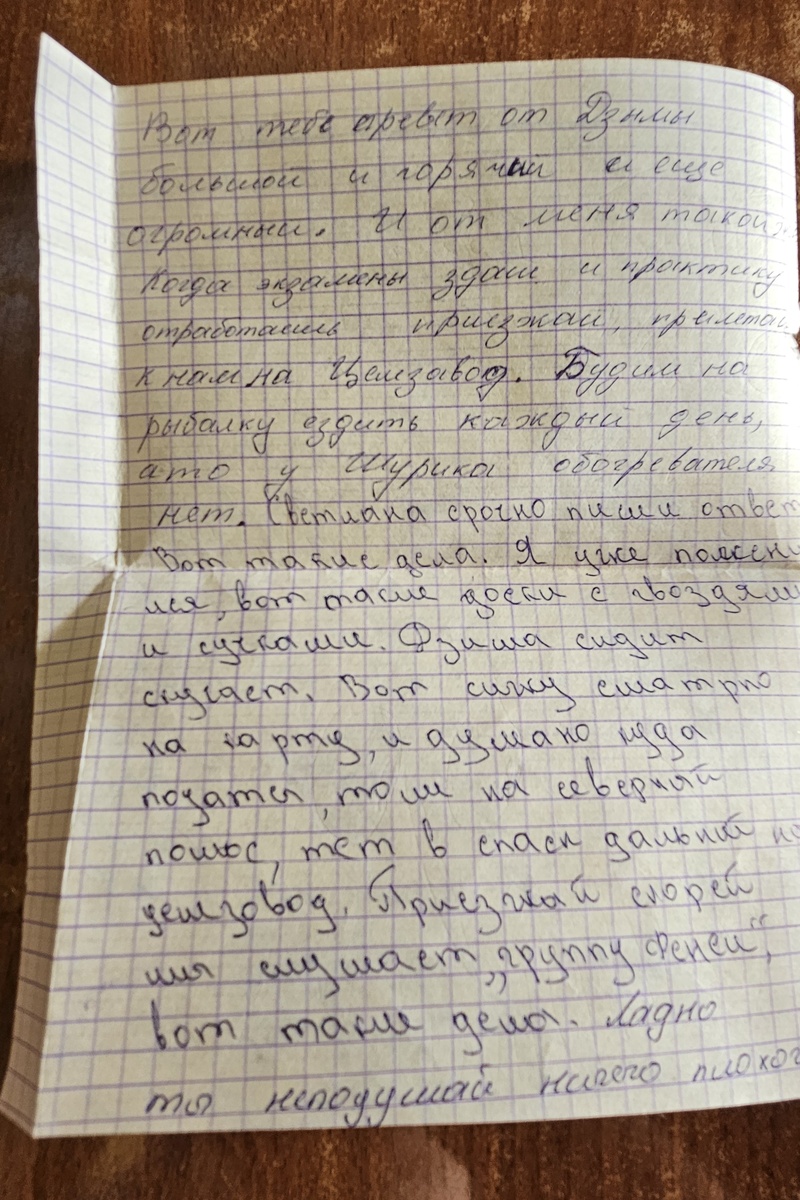 Вот тебе превет от Дзимы
большой и горячий и еще
огромный. И от меня такой
Когда экзамены здаш и практику
отработаишь приезжай, прылетай
к нам на Цемзавод. Будим на
рыбалку ездить каждый день,
ато у Шурика обогревателя
нет. Светлана срочно пиши ответ
Вот такие дела. Я уже пожени
лся, вот такие доски с гвоздями
и сучками. Дзима сидит
скучает. Вот сижу сматрю
на карту, и думаю куда
податся, то ли на северный
полюс, тет в спаск дальний на
цемзовод. Приезжай скорей
мы слушаем „группу Феней",
вот такие дела. Ладно
ты неподумай ничего плохог